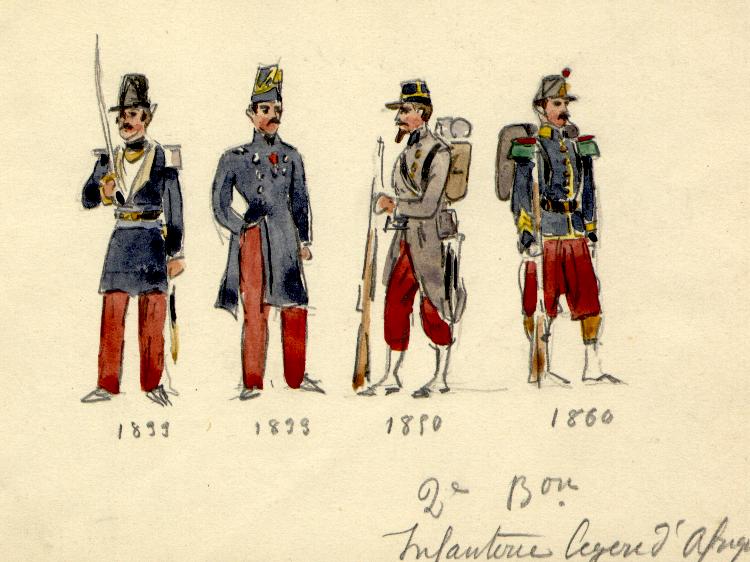 1899 1899 1850 1860
2e Bon.
Infanterie legere d'Afrique